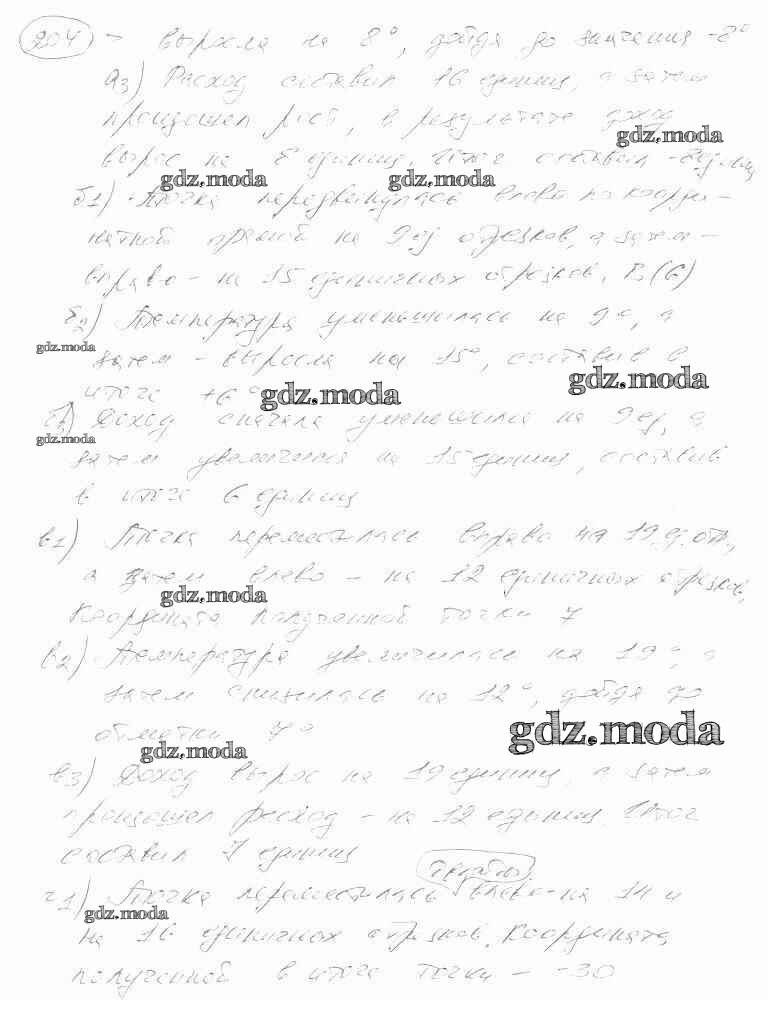 204 - выросла на 8°, дойдя до значения -8°
а3) Расход составил 16 единиц, а затем
произошел рост, в результате доход
gdz.moda
вырос на 8 единиц. Итог составил -8 единиц
gdz.moda gdz.moda
б1) Точка передвинулась влево по коорди-
натной прямой на 9 ед отрезков, а затем -
вправо - на 15 единичных отрезков. В(6)
б2) Температура уменьшилась на 9°, а
gdz.moda
затем - выросла на 15°, составив в
итоге +6°
gdz.moda gdz.moda
Доход сначала уменьшился на 9 ед, а
gdz.moda
затем увеличился на 15 единиц, составив
в итоге 6 единиц
в1) Точка переместилась вправо на 19 ед. отр,
а затем влево - на 12 единичных отрезков,
gdz.moda
Координата полученной точки 7
в2) Температура увеличилась на 19°, а
затем снизилась на 12°, дойдя до
отметки 7°
gdz.moda
gdz.moda
в3) Доход вырос на 19 единиц, а затем
произошел расход - на 12 единиц. Итог
составил 7 единиц
г1) Точка переместилась влево - на 14 и
gdz.moda
на 16 единичных отрезков. Координата
полученной в итоге точки - -30